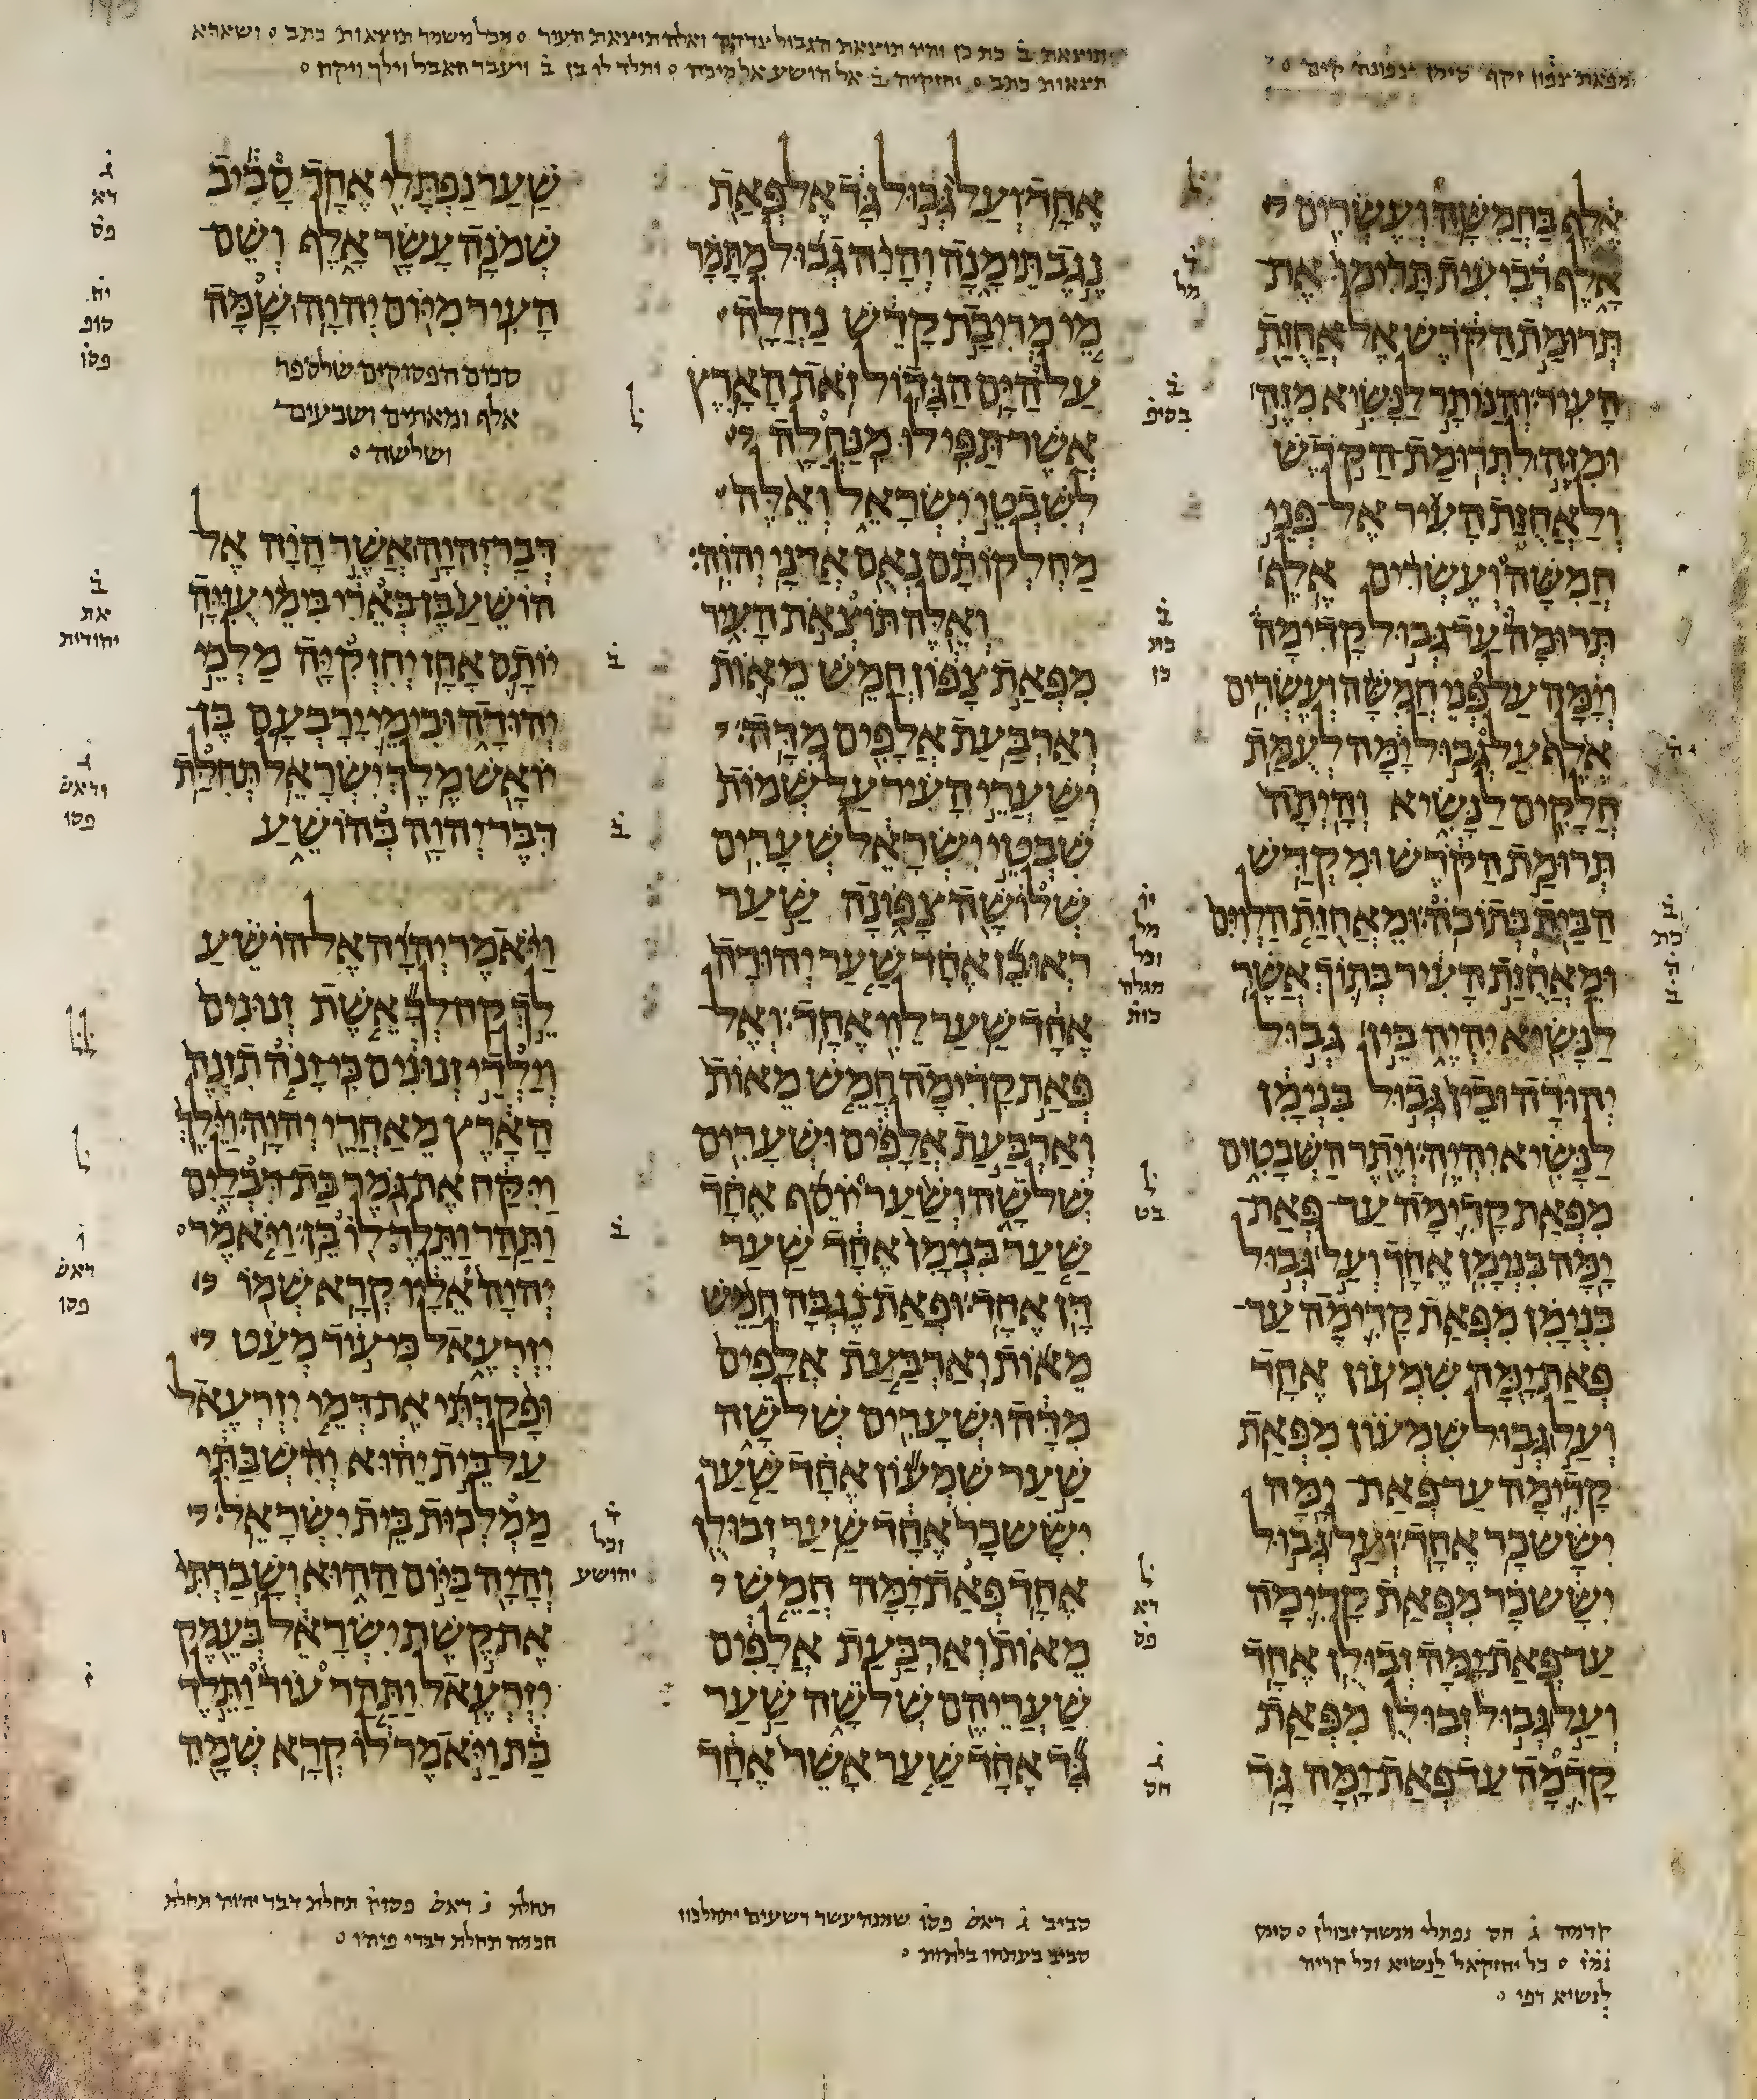 מפאת צפון זקף סימן צפונה קדים ס
תוצאת ב כת כן והיו תוצאת הגבול צדדה ואלה תוצאת העיר ס מכל משמר תוצאות כתב ס ושארא
תצאות כתב ס יחזקיה ב אל הושע אל מיכה ס ותלד לו בן ב ויעבר האבל וילך ויקח ס
אלף בחמשה ועשרים
אלף רביעית תרימו את
תרומת הקדש אל אחזת
העיר והנותר לנשיא מזה
ומזה לתרומת הקדש
ולאחזת העיר אל פני
חמשה ועשרים אלף
תרומה עד גבול קדימה
וימה על פני חמשה ועשרים
אלף על גבול ימה לעמת
חלקים לנשיא והיתה
תרומת הקדש ומקדש
הבית בתוכה ומאחזת הלוים
ומאחזת העיר בתוך אשר
לנשיא יהיה בין גבול
יהודה ובין גבול בנימן
לנשיא יהיה ויתר השבטים
מפאת קדימה עד פאת
ימה בנימן אחד ועל גבול
בנימן מפאת קדימה עד
פאת ימה שמעון אחד
ועל גבול שמעון מפאת
קדימה עד פאת ימה
יששכר אחד ועל גבול
יששכר מפאת קדימה
עד פאת ימה זבולן אחד
ועל גבול זבולן מפאת
קדמה עד פאת ימה גד
אחד ועל גבול גד אל פאת
נגב תימנה והיה גבול מתמר
מי מריבת קדש נחלה
על הים הגדול זאת הארץ
אשר תפילו מנחלה
לשבטי ישראל ואלה
מחלקותם נאם אדני יהוה
ואלה תוצאת העיר
מפאת צפון חמש מאות
וארבעת אלפים מדה
ושערי העיר על שמות
שבטי ישראל שערים
שלושה צפונה שער
ראובן אחד שער יהודה
אחד שער לוי אחד ואל
פאת קדימה חמש מאות
וארבעת אלפים ושערים
שלשה ושער יוסף אחד
שער בנימן אחד שער
דן אחד ופאת נגבה חמש
מאות וארבעת אלפים
מדה ושערים שלשה
שער שמעון אחד שער
יששכר אחד שער זבולן
אחד פאת ימה חמש
מאות וארבעת אלפים
שעריהם שלשה שער
גד אחד שער אשר אחד
שער נפתלי אחד סביב
שמנה עשר אלף ושם
העיר מיום יהוה שמה
סכום הפסוקים שלספר
אלף ומאתים ושבעים
ושלשה ס
דבר יהוה אשר היה אל
הושע בן בארי בימי עזיה
יותם אחז יחזקיה מלכי
יהודה ובימי ירבעם בן
יואש מלך ישראל תחלת
דבר יהוה בהושע
ויאמר יהוה אל הושע
לך קח לך אשת זנונים
וילדי זנונים כי זנה תזנה
הארץ מאחרי יהוה וילך
ויקח את גמר בת דבלים
ותהר ותלד לו בן ויאמר
יהוה אליו קרא שמו
יזרעאל כי עוד מעט
ופקדתי את דמי יזרעאל
על בית יהוא והשבתי
ממלכות בית ישראל
והיה ביום ההוא ושברתי
את קשת ישראל בעמק
יזרעאל ותהר עוד ותלד
בת ויאמר לו קרא שמה
ל
ד
מל
ב
בסיפ
ב
כת
כן
יו
מל
וכל
מגלה
כות
ל
בט
ל
רא
פס
ג
חס
ב
כת
ה
ב
ל
ב
ב
ב
ד
וכל
יהושע
ג
רא
פס
יח
סופ
פסו
ב
את
יהודית
ג
וראש
פסו
ל ל
ל
ו
ראש
פסו
ז
קדמה ג חס נפתלי מנשה זבולן ס סימן
נמז ס כל יחזקאל לנשיא וכל קריה
לנשיא דפי ס
סביב ג ראש פסו שמנה עשר רשעים יתהלכון
סביב בעתהו בלהות ס
תחלת ג ראש פסוק תחלת דבר יהוה תחלת
חכמה תחלת דברי פיהו ס